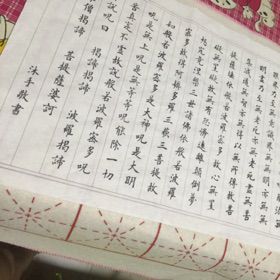 明盡乃至無老死亦無老死盡無苦
集滅道無智亦無得以無所得故菩
提薩埵依般若波羅蜜多故心無罣
礙無罣礙故無有恐怖遠離顛倒夢
想究竟涅槃三世諸佛依般若波羅
蜜多故得阿耨多羅三藐三菩提故
知般若波羅蜜多是大神呪是大明
呪是無上呪是無等等呪能除一切
苦真實不虛故說般若波羅蜜多呪
說呪曰 揭諦揭諦 波羅揭諦
揭諦 菩提薩婆訶
沐手敬書